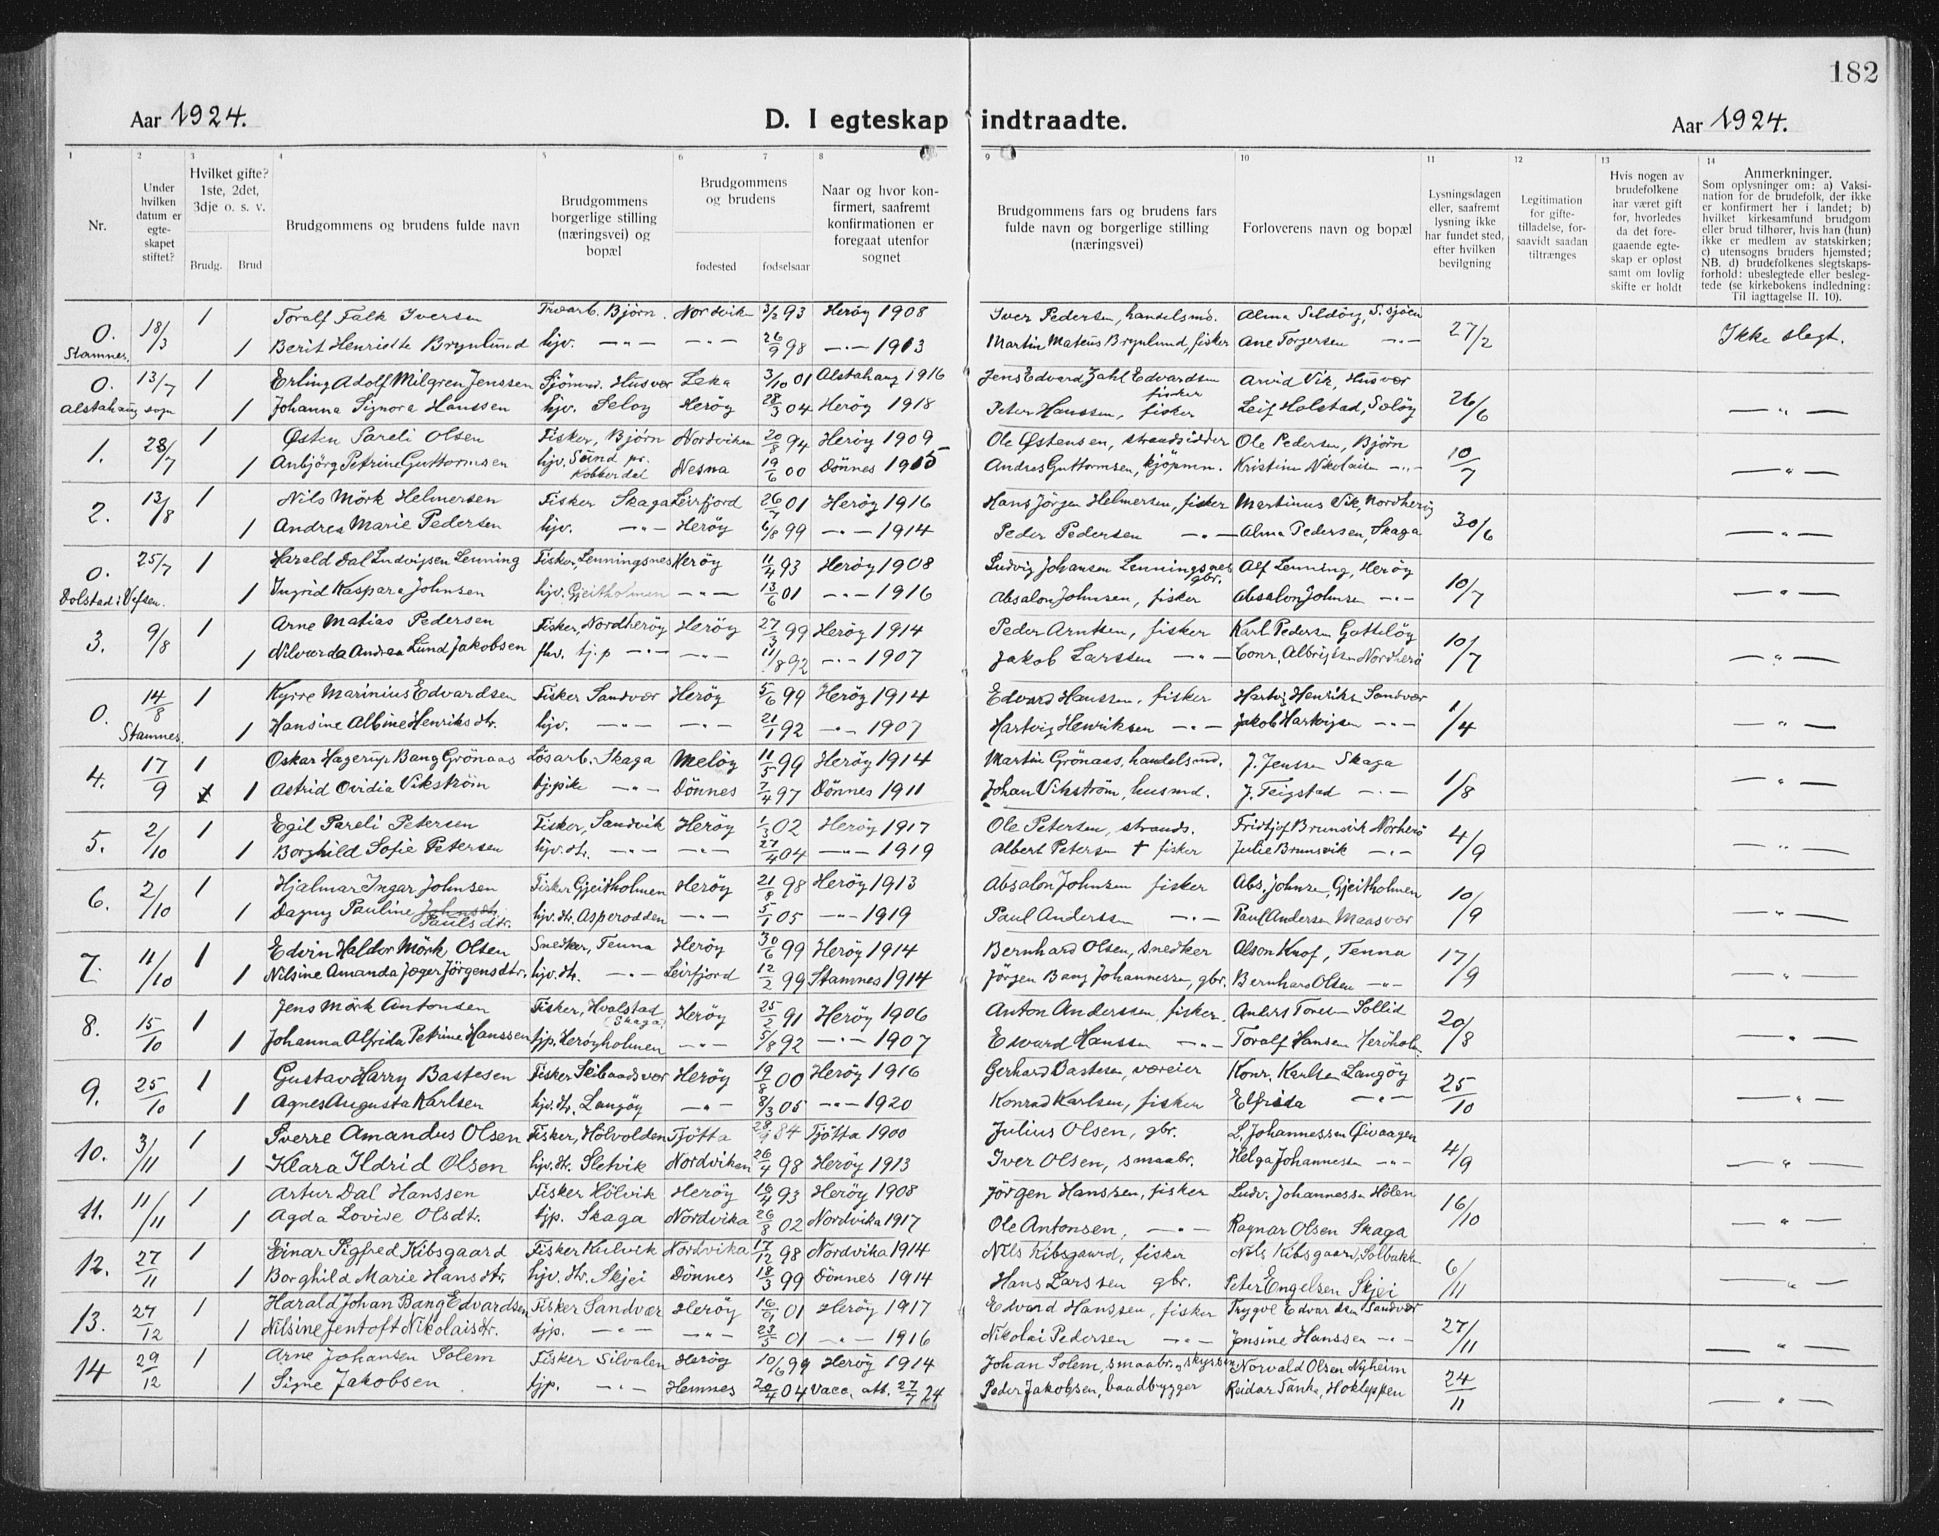 182
Aar 1924.
D. I egteskap indtraadte.
Aar 1924.
1 2 3 4 5 6 7 8 9 10 11 12 13 14
Nr.
Under hvilken datum er egte-skapet stiftet?
Hvilket gifte? 1ste, 2det, 3dje o. s. v.
Brudg. Brud
Brudgommens og brudens fulde navn
Brudgommens borgerlige stilling (næringsvei) og bopæl
Brudgommens og brudens
fødested fødselsaar
Naar og hvor kon-firmert, saafremt konfirmationen er foregaat utenfor sognet
Brudgommens fars og brudens fars fulde navn og borgerlige stilling (næringsvei)
Forloverens navn og bopæl
Lysningsdagen eller, saafremt lysning ikke har fundet sted, efter hvilken bevilgning
Legitimation for gifte-tilladelse, for-saavidt saadan tiltrænges
Hvis nogen av brudefolkene har været gift før, hvorledes da det fore-gaaende egte-skap er opløst samt om lovlig skifte er holdt
Anmerkninger.
Som oplysninger om: a) Vaksi-nation for de brudefolk, der ikke er konfirmert her i landet; b) hvilket kirkesamfund brudgom eller brud tilhører, hvis han (hun) ikke er medlem av statskirken; c) utensogns bruders hjemsted; NB. d) brudefolkenes slegtskaps-forhold: ubeslegtede eller besleg-tede (se kirkebokens indledning: Til iagttagelse II. 10).
0. 18/3 1 Toralf Falk Iversen Bjørn. Nordviken 3/2 93 Herøy 1908 Iver Pedersen, handelsmd. Alma Sildöy, S.sjöen 27/2 Ikke slegt.
Stamnes. 1 Berit Henriette Brynlund hjv. -"- -"- 26/9 98 -"- 1913 Martin Mateus Brynlund, fisker Ane Torgersen -"-
0. 13/7 1 Erling Adolf Milgren Jenssen Sjömd. Husvær Leka 3/10 01 Alstahaug 1916 Jens Edvard Zahl Edvardsen fisker Arvid Vik, Husvær 26/6 -"-
Alstahaug sogn 1 Johanna Signora Hanssen hjv. Seløy Herøy 28/3 04 Herøy 1918 Peter Hanssen, fisker Leif Holstad, Seløy
1. 28/7 1 Østen Pareli Olsen Fisker, Bjørn Nordviken 20/8 94 Herøy 1909 Ole Østensen, strandsidder Ole Pedersen, Bjørn 10/7 -"-
1 Anbjörg Petrine Guttormsen hjv. Sund pr. Kobberdal Nesna 19/6 00 Dönnes 1915 Andreas Guttormsen, kjöpmn. Kristine Nikolaisen -"-
2. 13/8 1 Nils Mörk Helmersen Fisker Skaga Leirfjord 26/7 01 Herøy 1916 Hans Jörgen Helmersen, fisker Martinus Vik, Nordherøy 30/6 -"-
1 Andrea Marie Pedersen hjv. -"- Herøy 6/8 99 -"- 1914 Peder Pedersen -"- Alma Pedersen, Skaga
0. 25/7 1 Harald Dal Ludvigsen Lenning Fisker, Lenningsnes Herøy 11/4 93 Herøy 1908 Ludvig Johansen Lenningsnes gbr. Alf Lenning, Herøy 10/7 -"-
Dolstad i Vefsen. 1 Ingrid Kaspara Johnsen hjv. Gjeitholmen -"- 13/6 01 -"- 1916 Absalon Johnsen, fisker Absalon Johnsen -"-
3. 9/8 1 Arne Matias Pedersen Fisker, Nordherøy Herøy 27/3 99 Herøy 1914 Peder Arntsen, fisker Karl Pedersen 10/7 -"-
1 Nilvarda Andrea Lund Jakobsen tj.p -"- -"- 11/8 92 -"- 1907 Jakob Larssen -"- Conr. Albrigtsen Nordherø
0. 14/8 1 Kyrre Marinius Edvardsen Fisker Sandvær Herøy 5/6 99 Herøy 1914 Edvard Hanssen, fisker Hartvig Henriksen Sandvær 1/4 -"-
Stamnes. 1 Hansine Albine Henriksdtr. hjv. -"- -"- 21/1 92 -"- 1907 Hartvig Henriksen -"- Jakob Hartvigsen -"-
4. 17/9 1 Oskar Hagerup Bang Grönaas Lösarb. Skaga Meløy 11/5 99 Herøy 1914 Martin Grönaas, handelsmd. J. Jenssen Skaga 1/8 -"-
1 Astrid Ovidia Vikström tj.pike -"- Dönnes 7/4 97 Dönnes 1911 Johan Vikström, husmd. J. Teigstad -"-
5. 2/10 1 Egil Pareli Petersen Fisker, Sandvik Herøy 1/3 02 Herøy 1917 Ole Petersen, strands. Fridtjof Brunsvik Norherö 4/9 -"-
1 Borghild Sofie Petersen hjv. dtr. -"- -"- 27/4 04 -"- 1919 Albert Petersen † fisker Julie Brunsvik -"-
6. 2/10 1 Hjalmar Ingar Johnsen Fisker Gjeitholmen Herøy 21/8 98 Herøy 1913 Absalon Johnsen fisker Abs. Johnsen, Gjeitholmen 10/9 -"-
1 Dagny Pauline Paulsdtr. hjv. dtr. Asperodden -"- 5/1 05 -"- 1919 Paul Anderssen -"- Paul Andersen Maasvær
7. 11/10 1 Edvin Haldor Mörk Olsen Snedker, Tenna Herøy 30/6 99 Herøy 1914 Bernhard Olsen, snedker Alson Knof, Tenna 17/9 -"-
1 Nilsine Amanda Jæger Jörgensdtr. hjv. dtr. -"- Leirfjord 12/2 99 Stamnes 1914 Jörgen Bang Johannessen, gbr. Bernhard Olsen -"-
8. 15/10 1 Jens Mörk Antonsen Fisker, Hvalstad (Skaga) Herøy 25/2 91 Herøy 1906 Anton Anderssen, fisker. Sollid 20/8 -"-
1 Johanna Alfrida Petrine Hanssen tjp. Herøyholmen -"- 5/8 92 -"- 1907 Edvard Hanssen -"- Toralf Hansen Heröholm.
9. 25/10 1 Gustav Harry Bastesen Fisker Skibaadsvær Herøy 19/8 00 Herøy 1916 Gerhard Bastesen, væreier Konr. Karlsen Langöy 25/10 -"-
1 Agnes Augusta Karlsen hjv. dtr. Langöy -"- 8/3 05 -"- 1920 Konrad Karlsen, fisker Elfrida -"-
10. 3/11 1 Sverre Amandus Olsen Fisker, Holvolden Tjötta 28/9 84 Tjötta 1900 Julius Olsen, gbr. L. Johannessen Öivaagen 4/9 -"-
1 Klara Ildrid Olsen hjv. dtr. Sletvik Nordviken 26/4 98 Herøy 1913 Iver Olsen, smaabr. Helga Johannessen -"-
11. 11/11 1 Artur Dal Hanssen Fisker Hölvik Herøy 16/4 93 Herøy 1908 Jörgen Hanssen, fisker Ludv. Johannessen Hölen 16/10 -"-
1 Agda Lovise Olsdtr. tjp. Skaga Nordvika 26/8 02 Nordvika 1917 Ole Antonsen, -"- Ragnar Olsen Skaga
12. 27/11 1 Einar Sigfred Kibsgaard Fisker Kulvik Nordvika 17/12 98 Nordvika 1914 Nils Kibsgaard, fisker Nils Kibsgaard, Solbakk. 6/11 -"-
1 Borghild Marie Hansdtr. hjv. dtr. Skjei Dönnes 18/3 99 Dönnes 1914 Hans Larssen gbr. Peter Engelsen Skjei
13. 27/12 1 Harald Johan Bang Edvardsen Fisker Sandvær Herøy 16/9 01 Herøy 1917 Edvard Hanssen, fisker Trygve Edvardsen Sandvær 27/11 -"-
1 Nilsine Jentoft Nikolaisdtr. tjp. -"- -"- 23/5 01 -"- 1916 Nikolai Pedersen -"- Jensine Hanssen -"-
14 29/12 1 Arne Johansen Solem Fisker Silvalen Herøy 10/6 99 Herøy 1914 Johan Solem, smaabr. Norvald Olsen Nyheim 24/11 -"-
1 Signe Jakobsen tjp. -"- Hemnes 20/4 04 Vacc. att. 27/7 24 Peder Jakobsen, baadbygger Reidar Tanke, Hokleppen